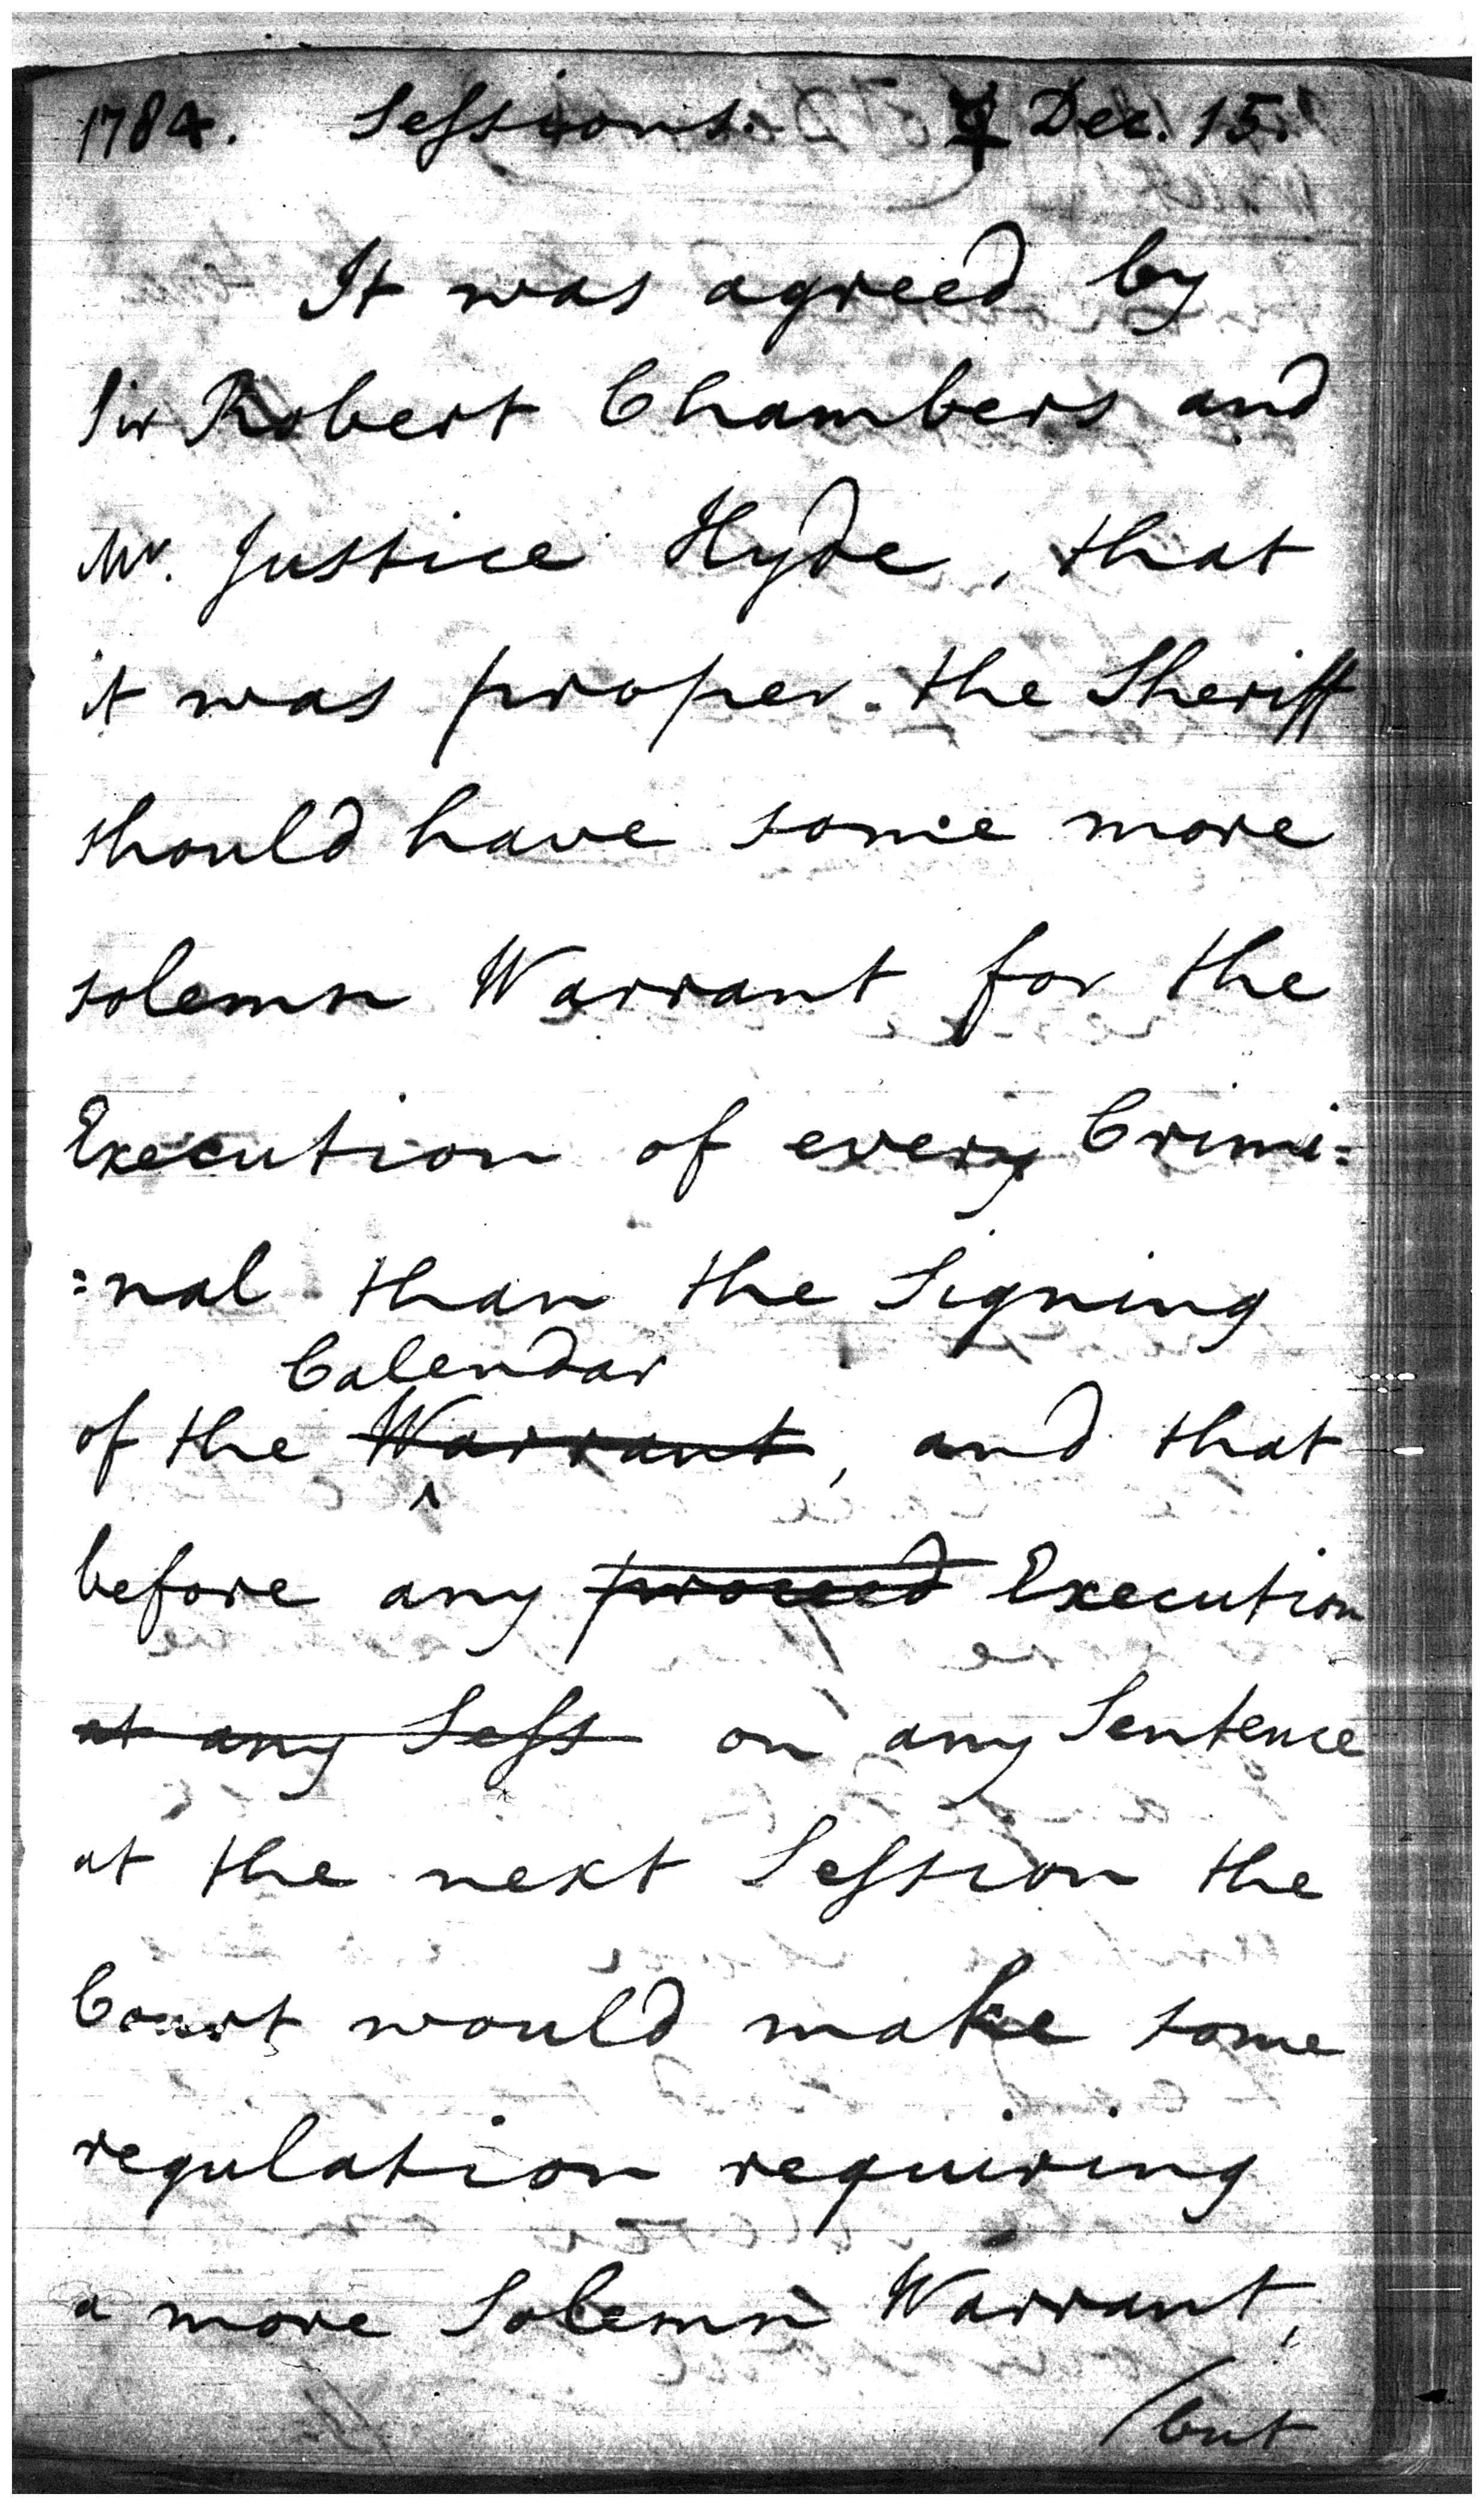 1784. Sessions. ☿ Dec. 15.
It was agreed by
Sir Robert Chambers and
Mr. Justice Hyde, that
it was proper the Sheriff
should have some more
solemn Warrant for the
Execution of every Crimi=
=nal than the Signing
Calendar
of the Warrant, and that
before any proceed Execution
at any Sess on any Sentence
at the next Session the
Court would make some
regulation requiring
a more Solemn Warrant,
/but